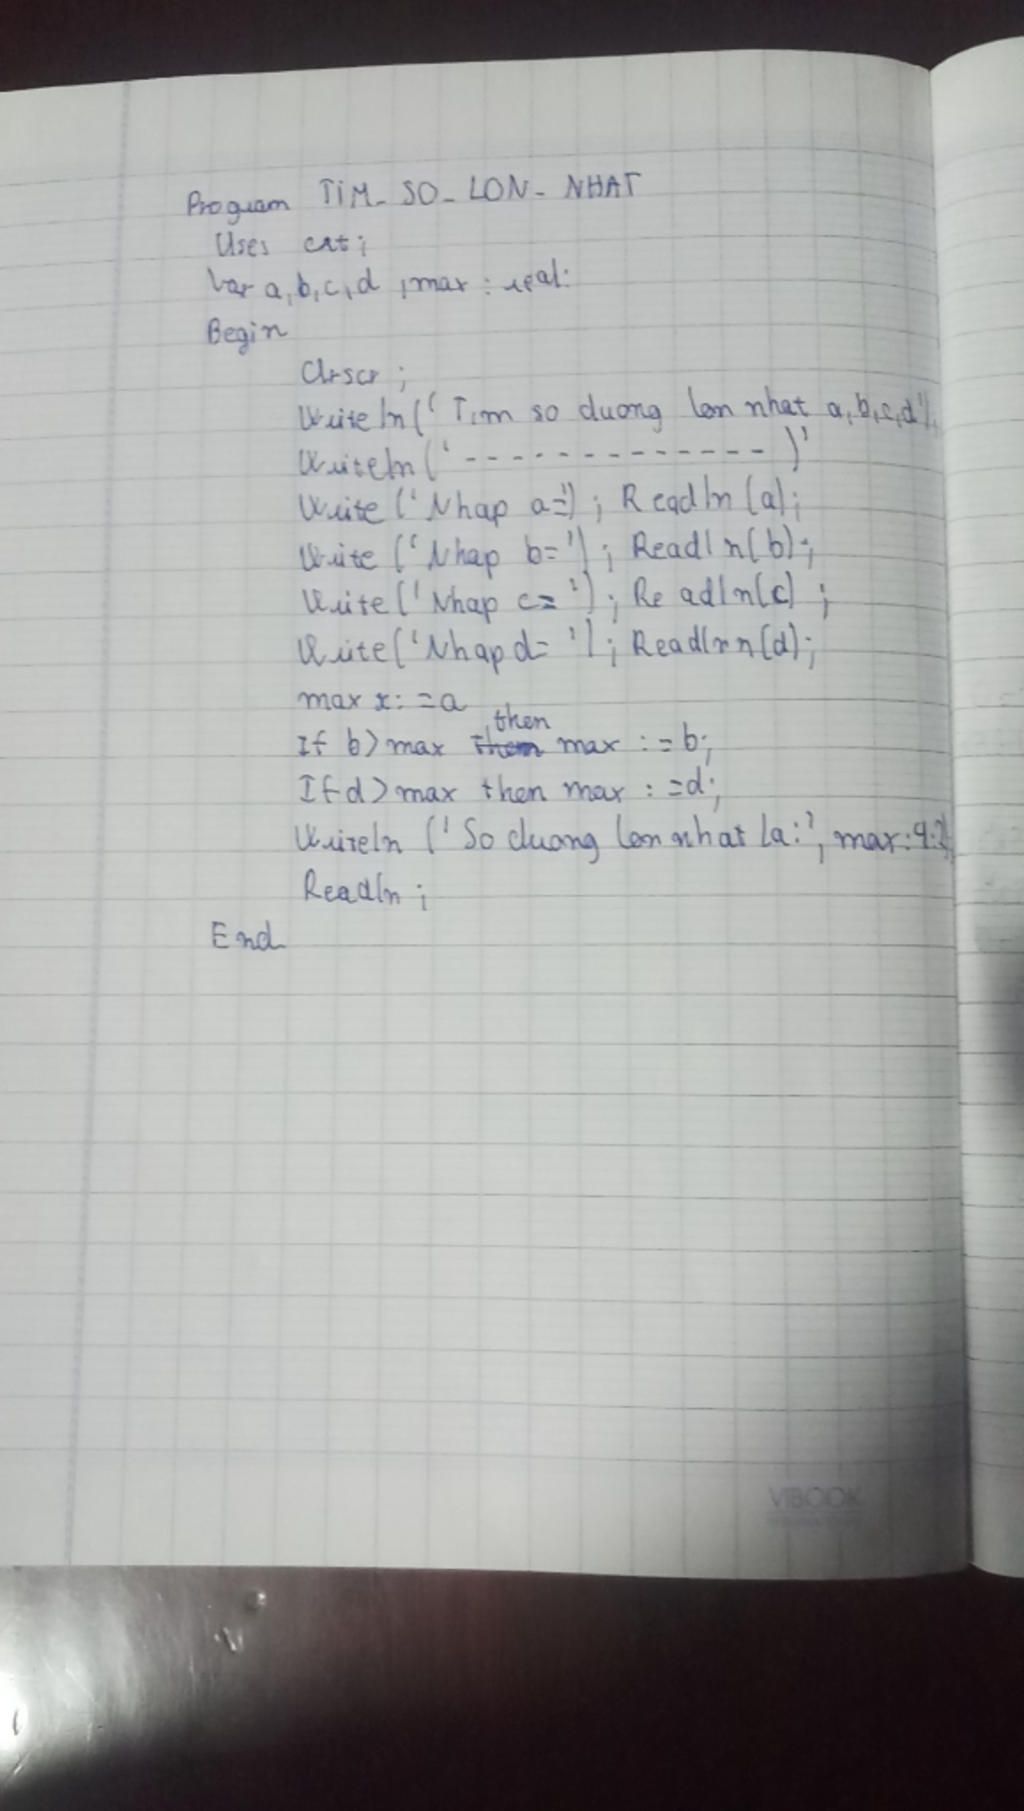 Program TIM_SO_LON_NHAT
Uses crt;
Var a,b,c,d ,max : real:
Begin
Clrscr ;
Writeln(' Tim so duong lon nhat a,b,c,d');
Writeln(' - - - - - - - - - - - - - )'
Write ('Nhap a='); Readln (a);
Write ('Nhap b='); Readln(b);
Write('Nhap c= '); Readln(c) ;
Write('Nhap d= '); Readlnn(d);
max x: =a
If b>max then max :=b;
If d>max then max : =d;
Writeln ('So duong lon nhat la:', max:9:2)
Readln ;
End
VIBOOK